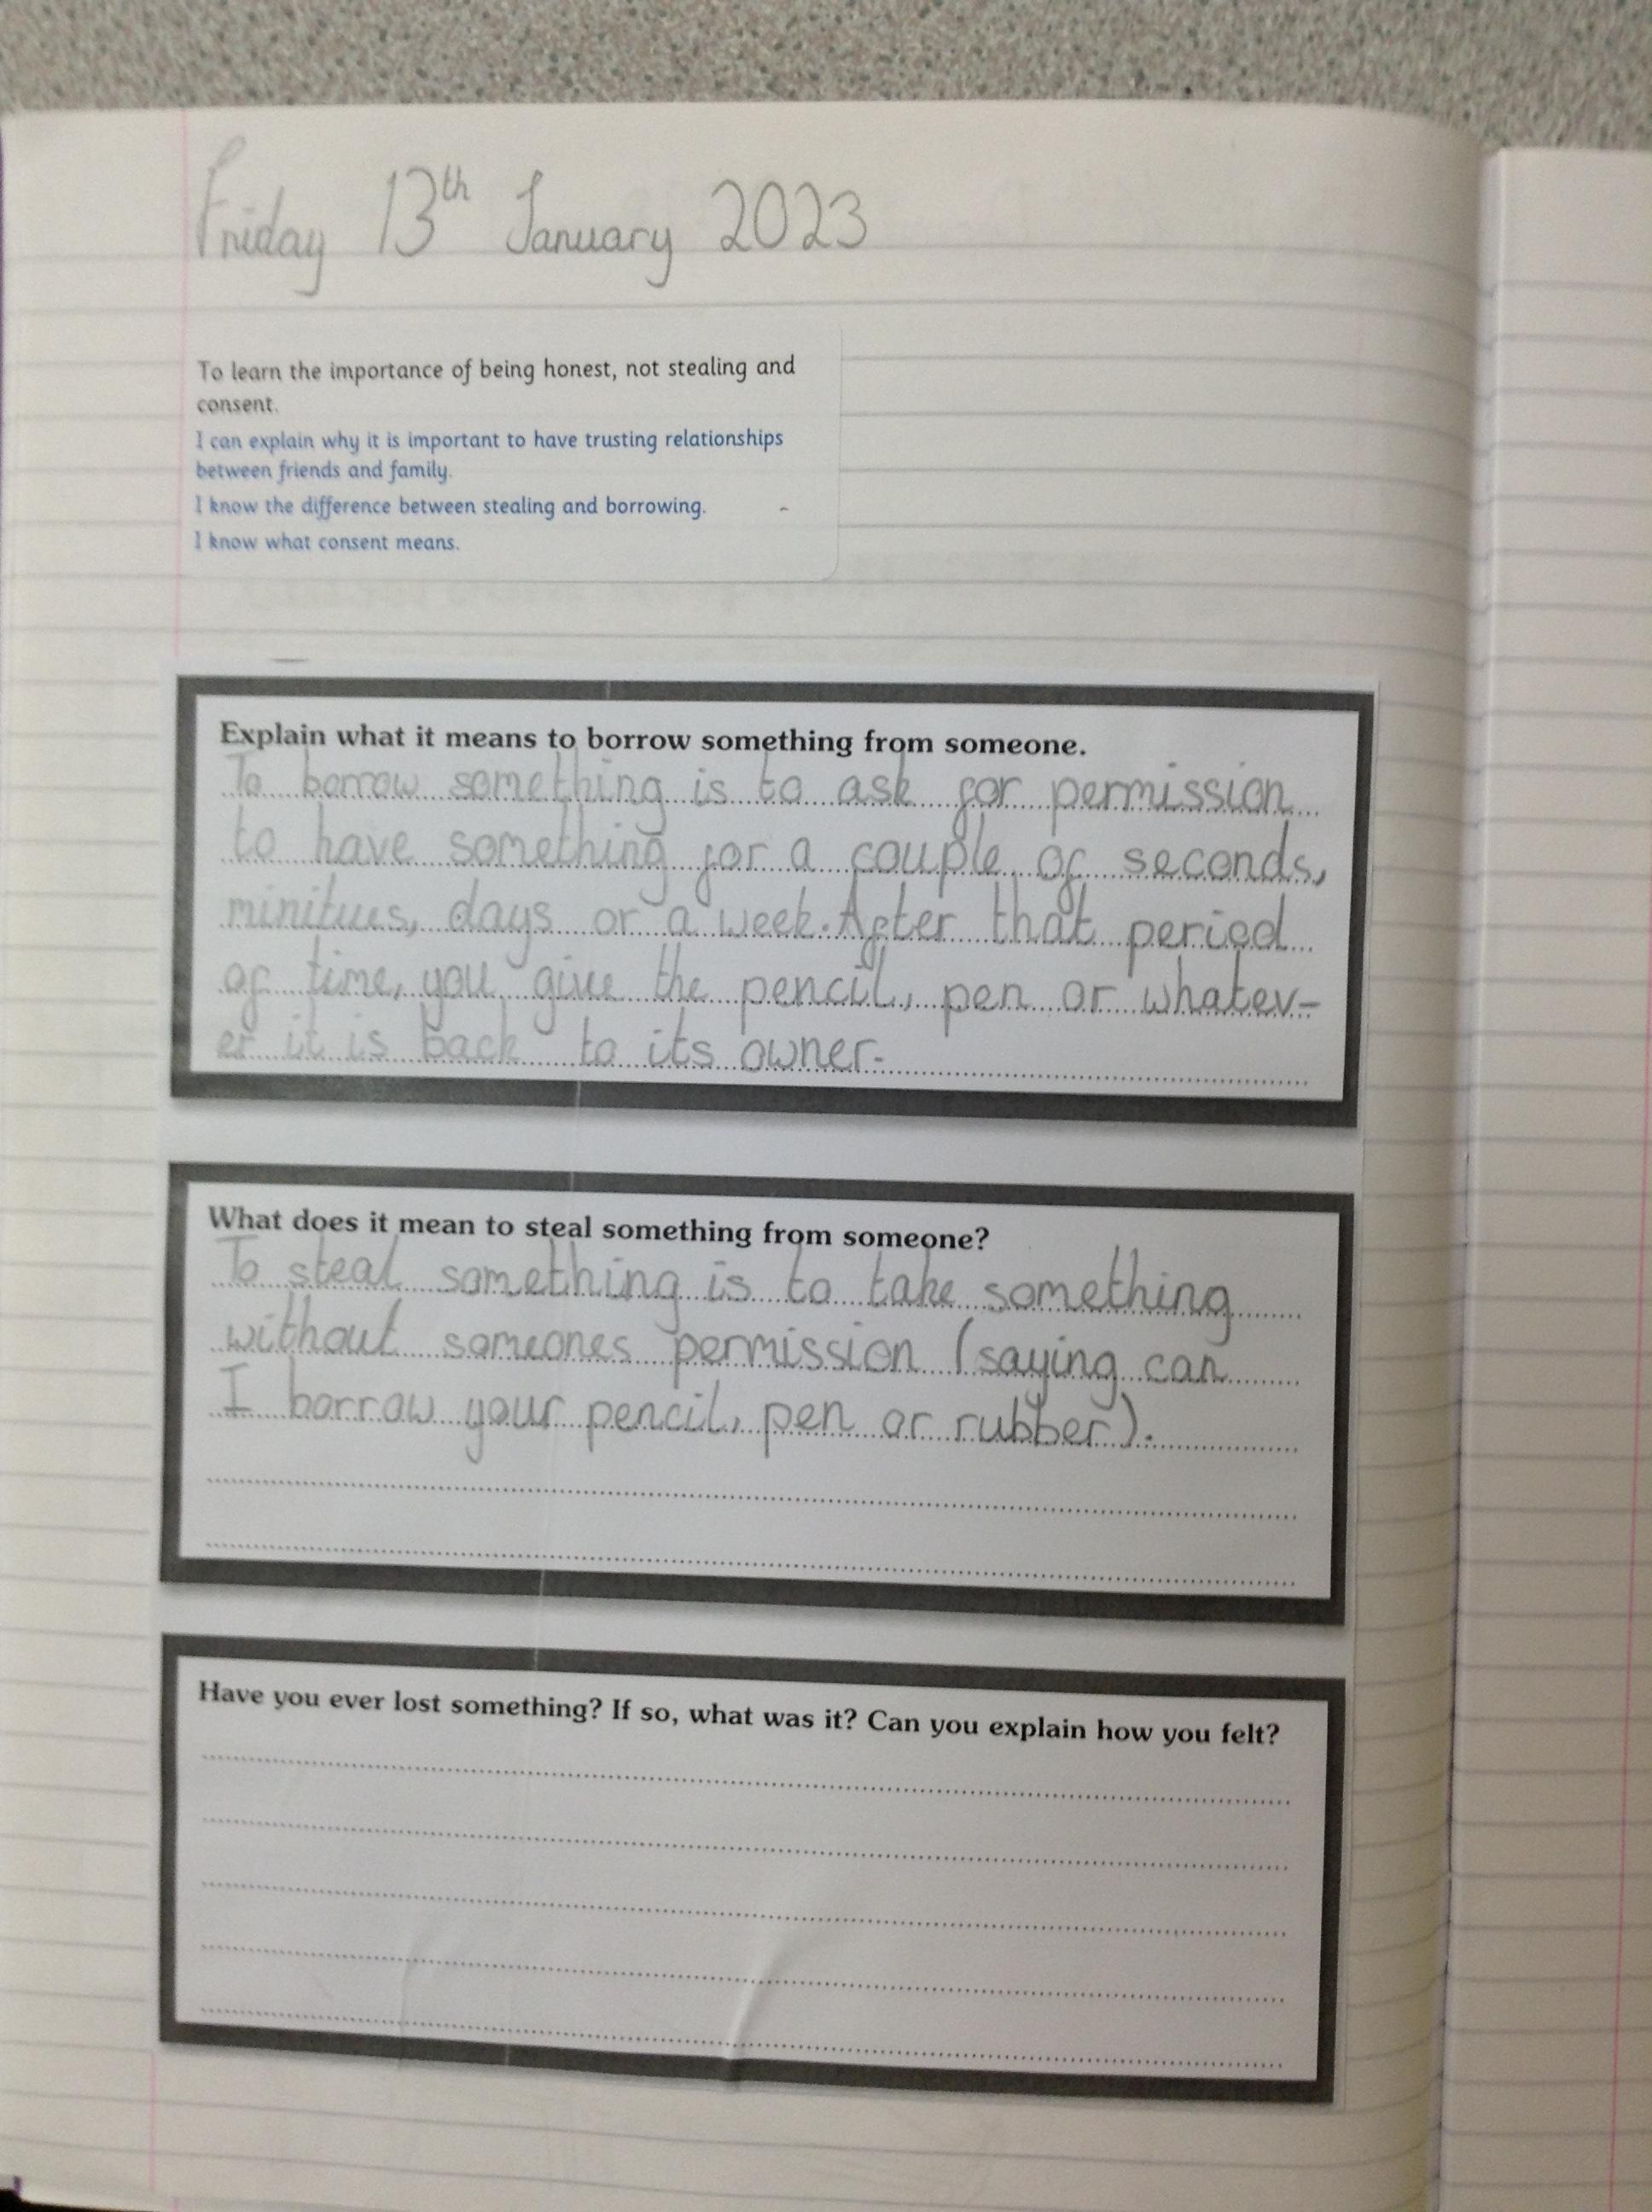 Friday 13th January 2023
To learn the importance of being honest, not stealing and
consent.
I can explain why it is important to have trusting relationships
between friends and family.
I know the difference between stealing and borrowing.
I know what consent means.
Explain what it means to borrow something from someone.
To borrow something is to ask for permission
to have something for a couple of seconds,
minitues, days or a week. After that period
of time, you give the pencil, pen or whatev-
er it is back to its owner.
What does it mean to steal something from someone?
To steal something is to take something
without someones permission (saying can
I borrow your pencil, pen or rubber).
Have you ever lost something? If so, what was it? Can you explain how you felt?